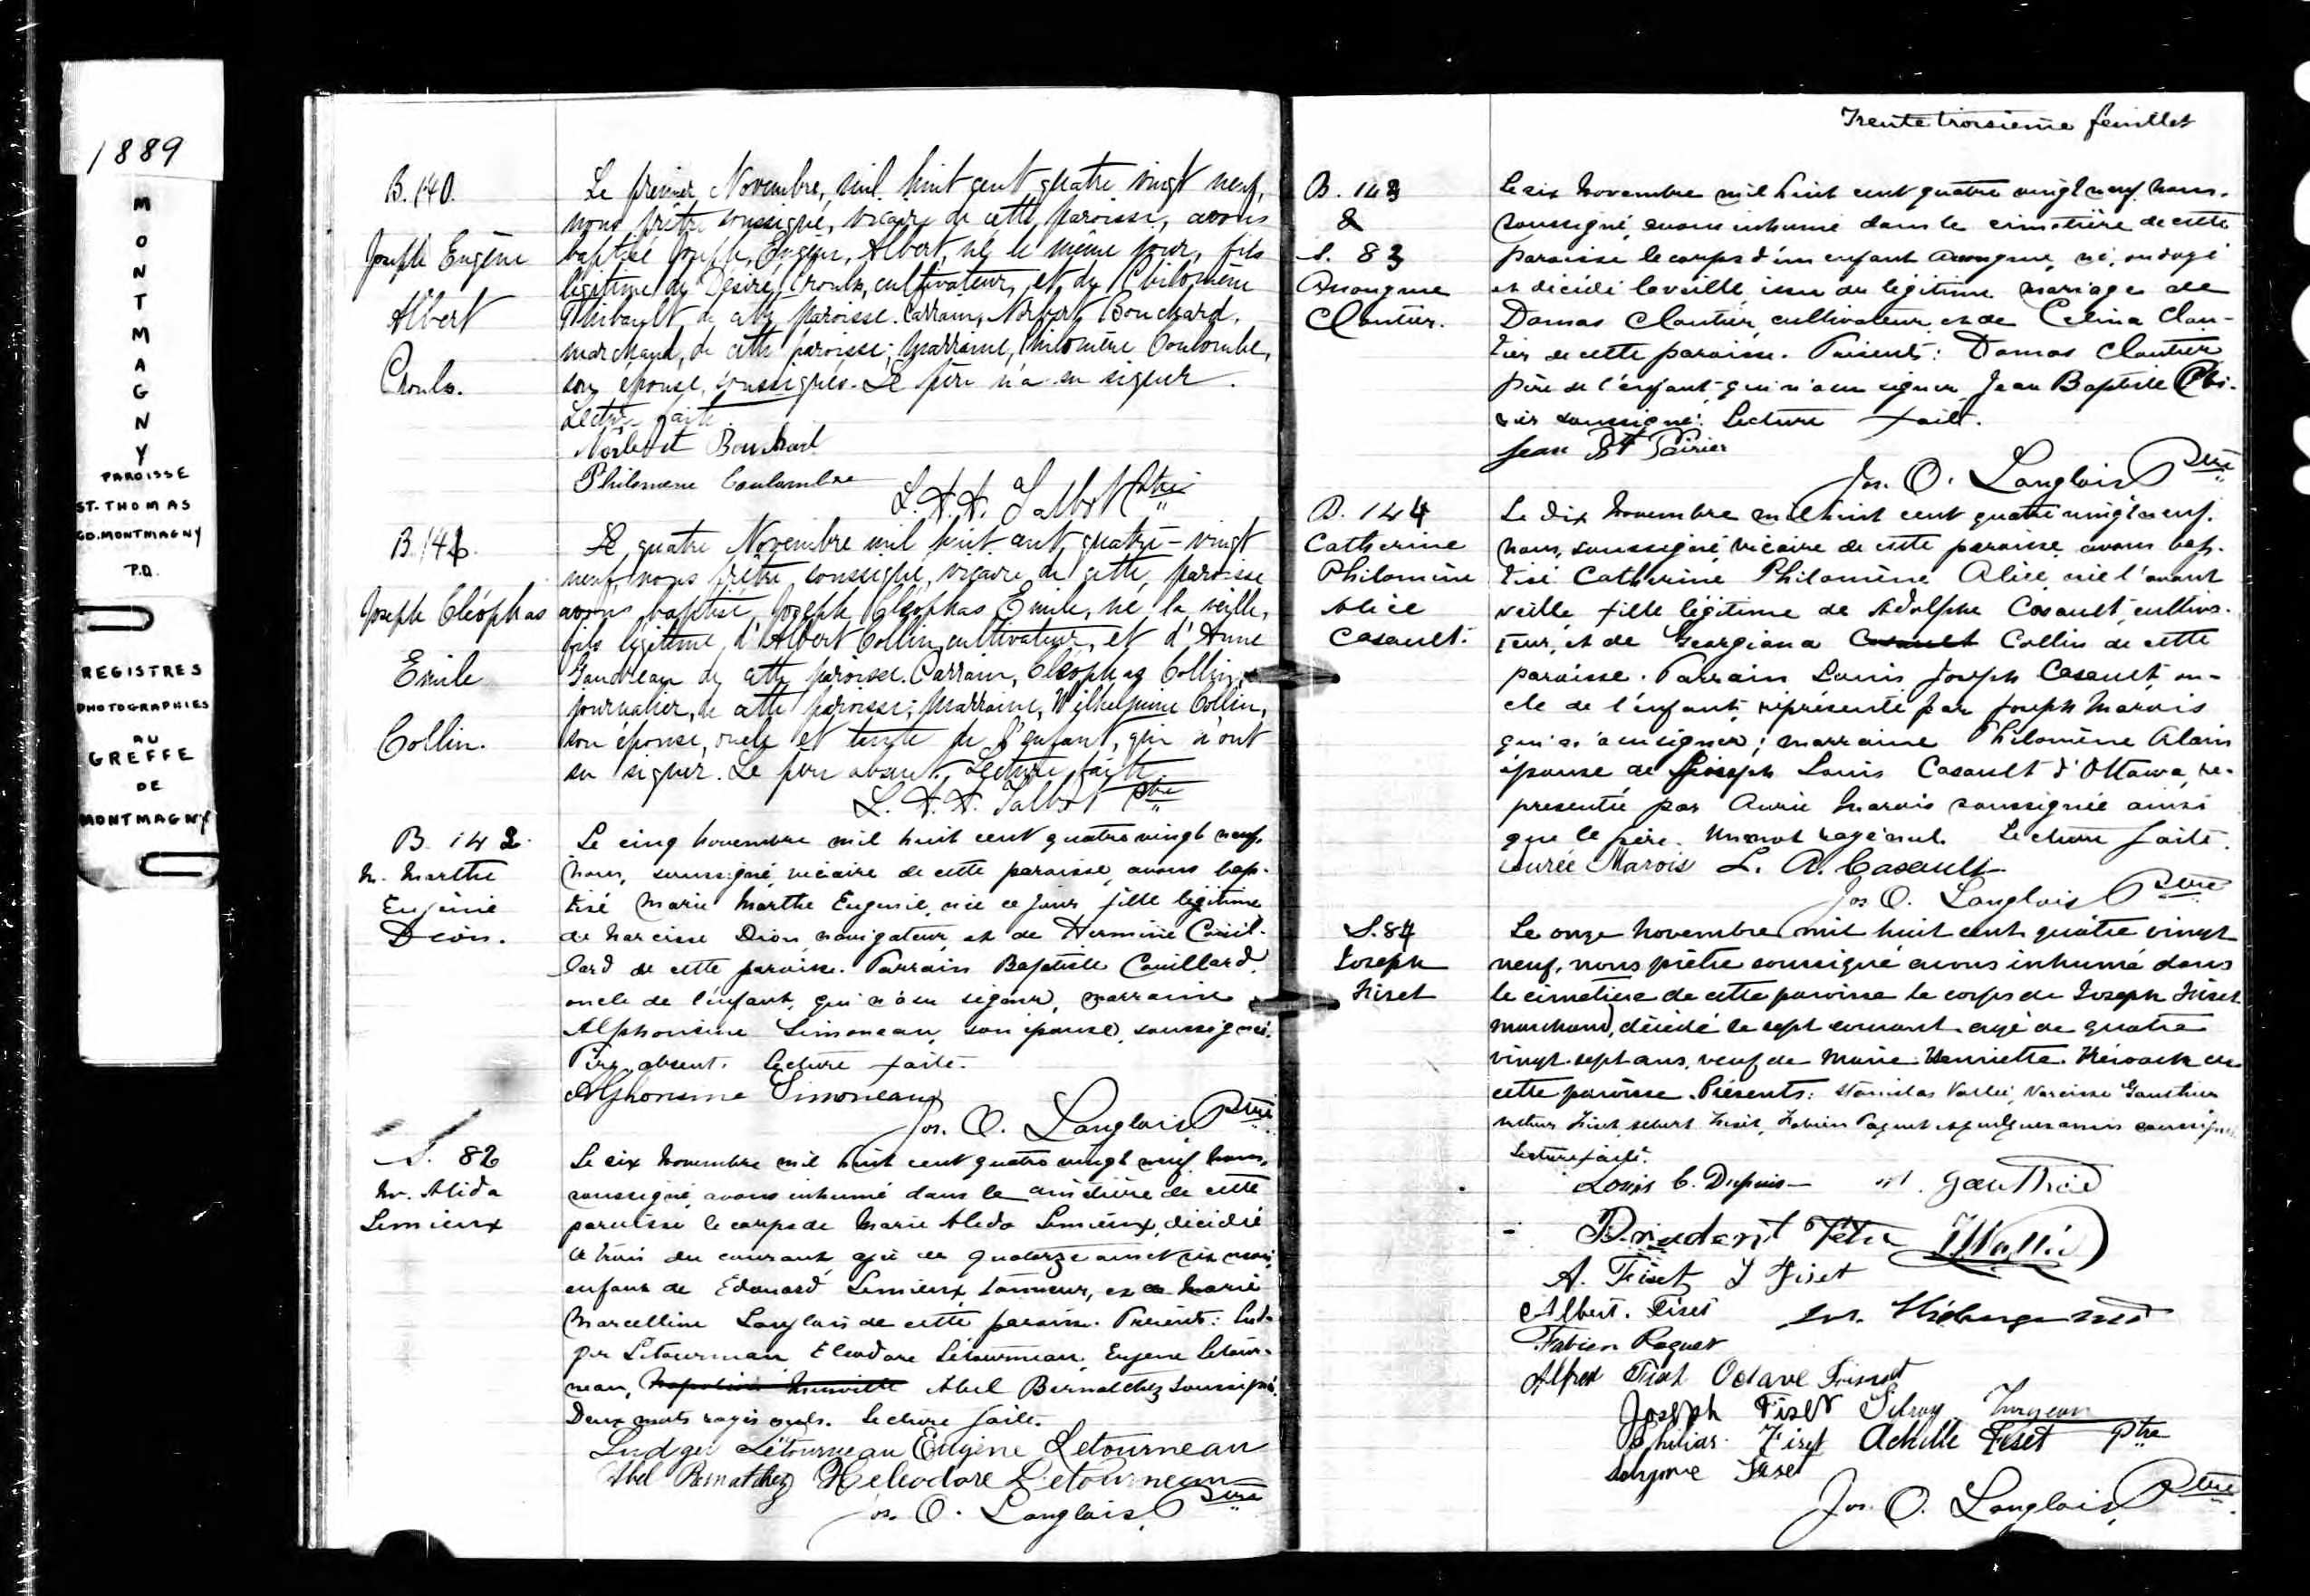 1889
MONTMAGNY
PAROISSE
ST-THOMAS
CO. MONTMAGNY
P.Q.
REGISTRES
PHOTOGRAPHIES
AU
GREFFE
DE
MONTMAGNY
B. 140.
Joseph Eugène
Albert
Le premier Novembre, mil huit cent quatre vingt neuf,
nous prêtre soussigné, vicaire de cette paroisse, avons
baptisé Joseph, Eugène, Albert, né le même jour, fils
légitime de Désiré cultivateur, et de Philomène
Thibault de cette paroisse. Parrain, Norbert Bouchard,
marchand, de cette paroisse; Marraine, Philomène Coulombe,
son épouse, soussignés. Le père n'a su signer.
Lecture faite
Norbert Bouchard
Philomène Coulombe
L. A. A. Talbot Ptre
B. 141.
Joseph Cléophas
Emile
Collin.
Le quatre Novembre mil huit cent quatre-vingt
neuf, nous prêtre soussigné, vicaire de cette paroisse
avons baptisé Joseph Cléophas Emile, né la veille,
fils légitime d'Albert Collin, cultivateur, et d'Anne
Gaudreau de cette paroisse. Parrain, Cléophas Collin,
journalier, de cette paroisse; Marraine, Wilhelmine Collin,
son épouse, oncle et tante de l'enfant, qui n'ont
su signer. Le père absent. Lecture faite.
L. A. A. Talbot Ptre
B. 142.
M. Marthe
Eugénie
Dion.
Le cinq novembre mil huit cent quatre vingt neuf,
Nous, soussigné, vicaire de cette paroisse, avons bap-
tisé Marie Marthe Eugenie, née ce jour, fille légitime
de Narcisse Dion, navigateur, et de Herminie Couil-
lard de cette paroisse. Parrain Baptiste Couillard,
oncle de l'enfant, qui n'a su signer, marraine
Alphonsine Simoneau, son épouse, soussignée.
Père absent. Lecture faite.
Alphonsine Simoneau
Jos. O. Langlois Ptre
S. 82
M. Alida
Lemieux
Le six Novembre mil huit cent quatre vingt neuf, nous,
soussigné, avons inhumé dans le cimétière de cette
paroisse le corps de Marie Alida Lemieux, décidée
le trois du courant, agée de quatorze ans et six mois,
enfant de Edouard Lemieux, tanneur, et de Marie
Marcelline Langlois de cette paroisse. Présents: Lud-
ger Letourneau, Eleodore Letourneau, Eugene Letour-
neau, Abel Bernatchez soussignés.
Deux mots rayés nuls. Lecture faite.
Ludger Létourneau Eugène Letourneau
Abel Bernatchez Heleodore Letourneau
Jos. O. Langlois Ptre
Trente troisième feuillet
B. 143
&
S. 83
Anonyme
Cloutier.
Le six Novembre mil huit cent quatre vingt neuf, nous,
soussigné, avons inhumé dans le cimetière de cette
paroisse le corps d'un enfant anonyme, né, ondoyé
et décédé la veille, issu du légitime mariage de
Damas Cloutier, cultivateur, et de Celina Clou-
tier de cette paroisse. Présents: Damas Cloutier
père de l'enfant qui n'a su signer, Jean Baptiste Poi-
rier soussigné. Lecture faite.
Jean Bt Poirier
Jos. O. Langlois Ptre
B. 144
Catherine
Philomène
Alice
Casault.
Le dix Novembre mil huit cent quatre vingt neuf,
nous, soussigné, vicaire de cette paroisse, avons bap-
tisé Catherine Philomène Alice, née l'avant
veille, fille légitime de Adolphe Casault, cultiva-
teur, et de Georgiana Casault Collin de cette
paroisse. Parrain Louis Joseph Casault, on-
cle de l'enfant, représenté par Joseph Marois
qui n'a su signer; marraine Philomène Alain
épouse de Joseph Louis Casault d'Ottawa, re-
presentée par Aurée Marois soussignée ainsi
que le père. Un mot rayé nul. Lecture faite.
Aurée Marois L. A. Casault
Jos O. Langlois Ptre
S. 84
Joseph
Fiset
Le onze Novembre mil huit cent quatre vingt
neuf, nous prêtre soussigné avons inhumé dans
le cimetière de cette paroisse le corps de Joseph Fiset
marchand, décédé le sept courant, agé de quatre
vingt-sept ans, veuf de Marie Henriette de
cette paroisse. Présents: Stanislas Vallée, Narcisse Gauthier
Fiset, Albert Fiset, Fabien Paquet et quelques amis soussignés
Lecture faite.
Louis C. Dupuis N. Gauthier
Prudent Têtu
A. Fiset J Fiset
Albert. Fiset
Fabien Paquet
Alfred Fiset Octave
Joseph Fiset Turgeon
Philias Fiset Achille Fiset Ptre
Fiset
Jos. O. Langlois, Ptre